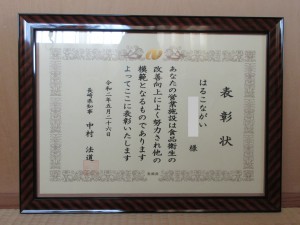 表彰状
はるこながい
様
あなたの営業施設は食品衛生の
改善向上によく努力され他の
模範となるものであります
よってここに表彰いたします
令和二年五月二十六日
長崎県知事 中村 法道